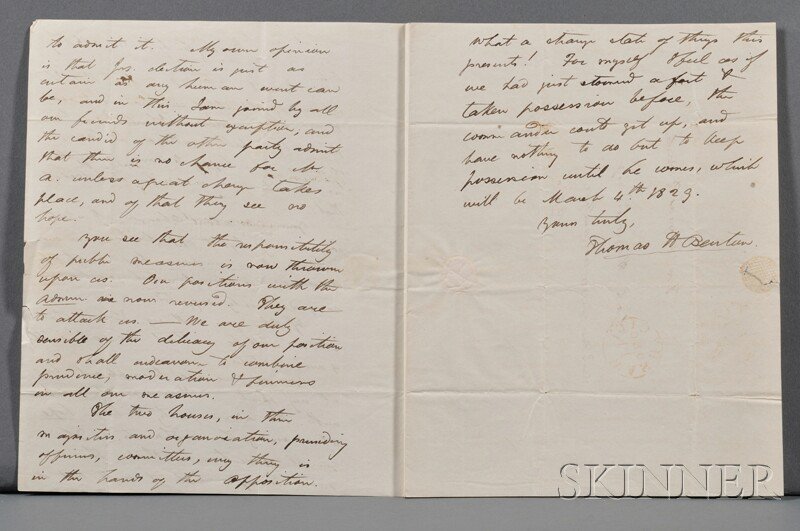 to admit it. My own opinion
is that Jn's election is just as
certain as any human event can
be, and in this I am joined by all
our friends without exception, and
the candid of the other party admit
that there is no chance for Mr
A. unless a great change takes
place, and of that they see no
hope.
You see that the responsibility
of public measures is now thrown
upon us. Our positions with the
admn are now reversed. They are
to attack us. — We are duly
sensible of the delicacy of our position
and shall endeavour to combine
prudence, moderation & firmness
in all our measures.
The two houses, in their
majorities and organization, presiding
officers, committees, every thing is
in the hands of the opposition.
What a strange state of things this
presents! For myself I feel as if
we had just stormed a fort &
taken possession before, the
commander could get up, and
have nothing to do but to keep
possession until he comes, which
will be March 4th 1829.
Yours truly,
Thomas H Benton.
SKINNER